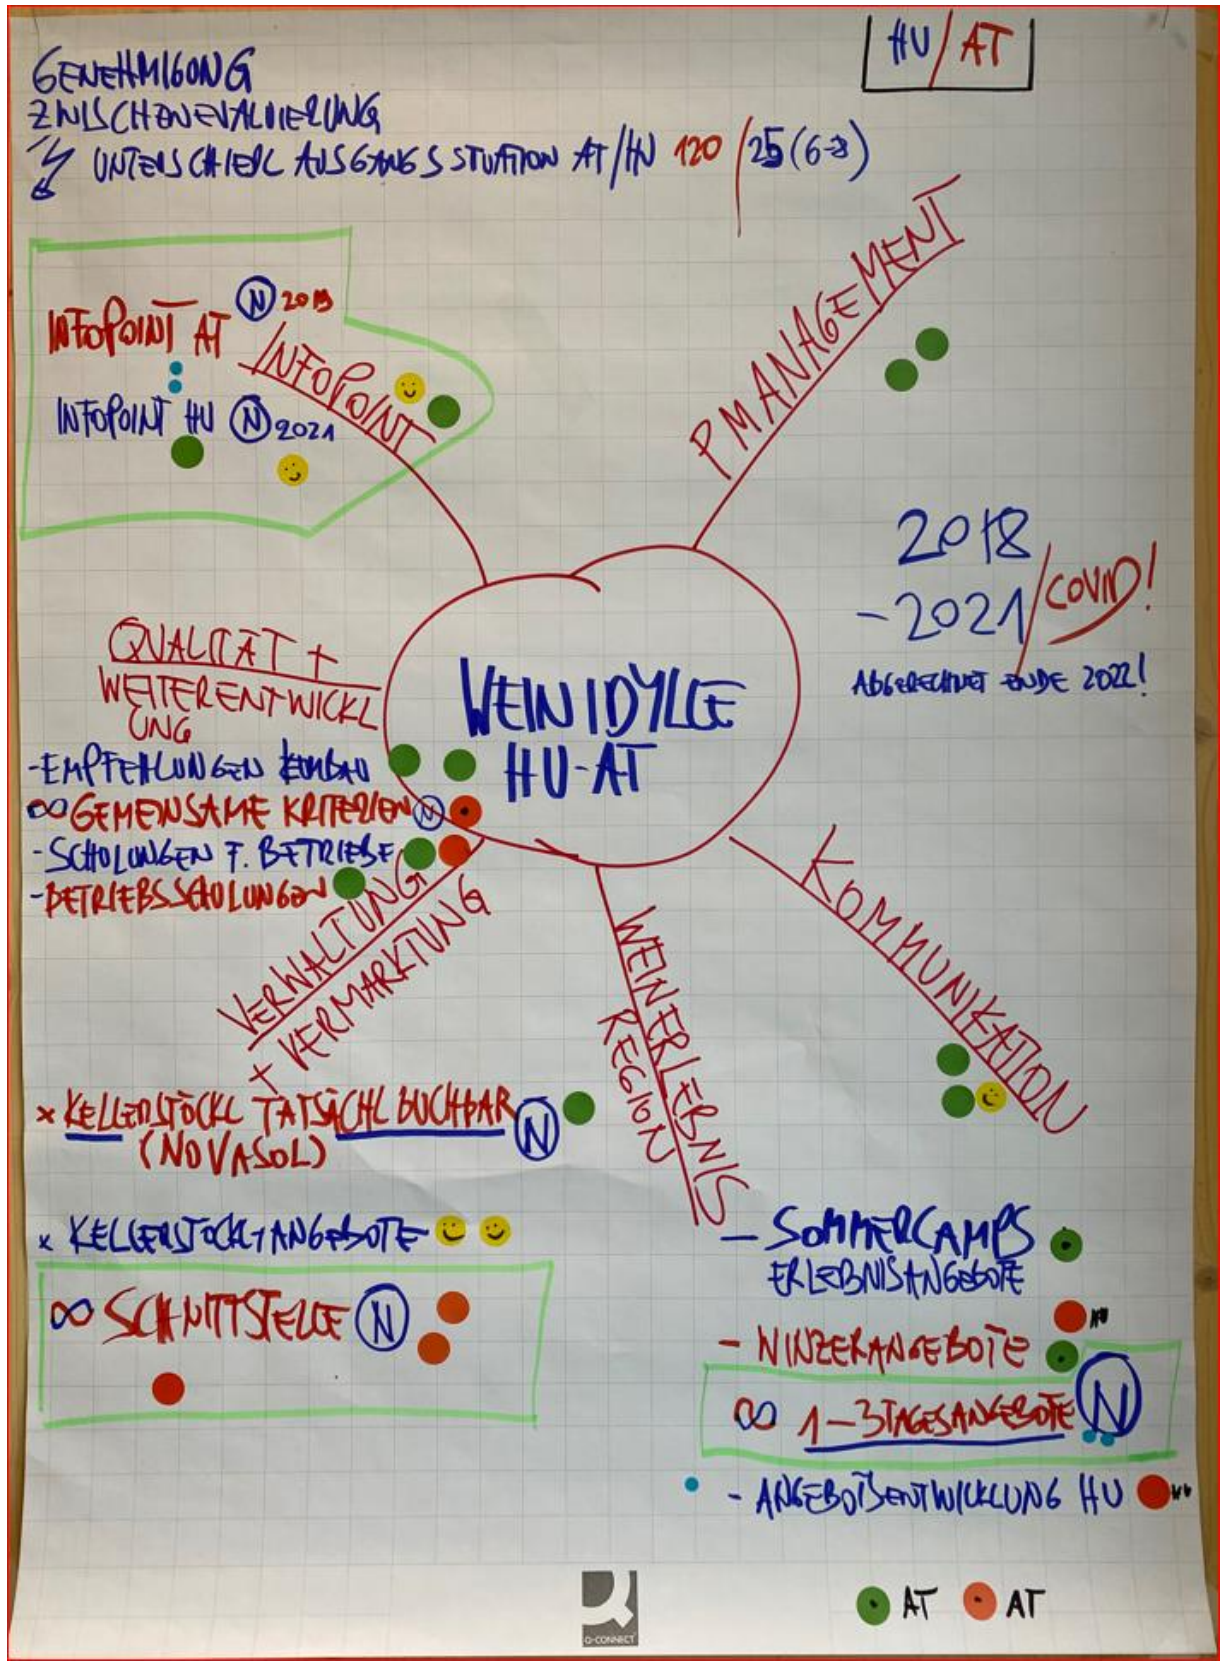 HU/AT
GENEHMIGUNG
ZWISCHENEVALUIERUNG
UNTERSCHIEDL AUSGANGSSITUATION AT/HU 120/25 (6-8)
INFOPOINT AT N 2019
INFOPOINT HU N 2021
INFOPOINT
PMANAGEMENT
2018
- 2021/COVID!
ABGERECHNET ENDE 2022!
WEINIDYLLE
HU-AT
QUALITÄT +
WEITERENTWICKL
UNG
- EMPFEHLUNGEN
∞ GEMEINSAME KRITERIEN N
- SCHULUNGEN F. BETRIEBE
- BETRIEBSSCHULUNGEN
VERWALTUNG
+ VERMARKTUNG
x KELLERSTÖCKL TATSÄCHL BUCHBAR N
(NOVASOL)
x KELLERSTÖCKLANGEBOTE
∞ SCHNITTSTELLE N
WEINERLEBNIS
REGION
KOMMUNIKATION
- SOMMERCAMPS
ERLEBNISANGEBOTE
HU
- WINZERANGEBOTE
∞ 1-3TAGESANGEBOTE N
- ANGEBOTSENTWICKLUNG HU
AT AT
Q-CONNECT